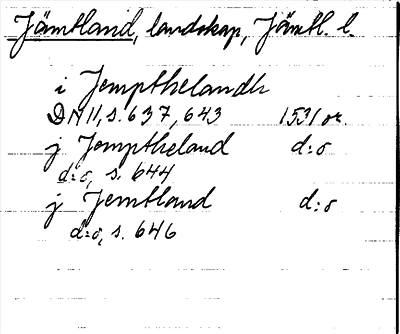 Jämtland, landskap, Jämtl. l.
i Jempthelandh
DN 11, s. 637, 643 1531 or.
j Jemptheland d:o
d:o, s. 644
j Jembland d:o
d:o, s. 646